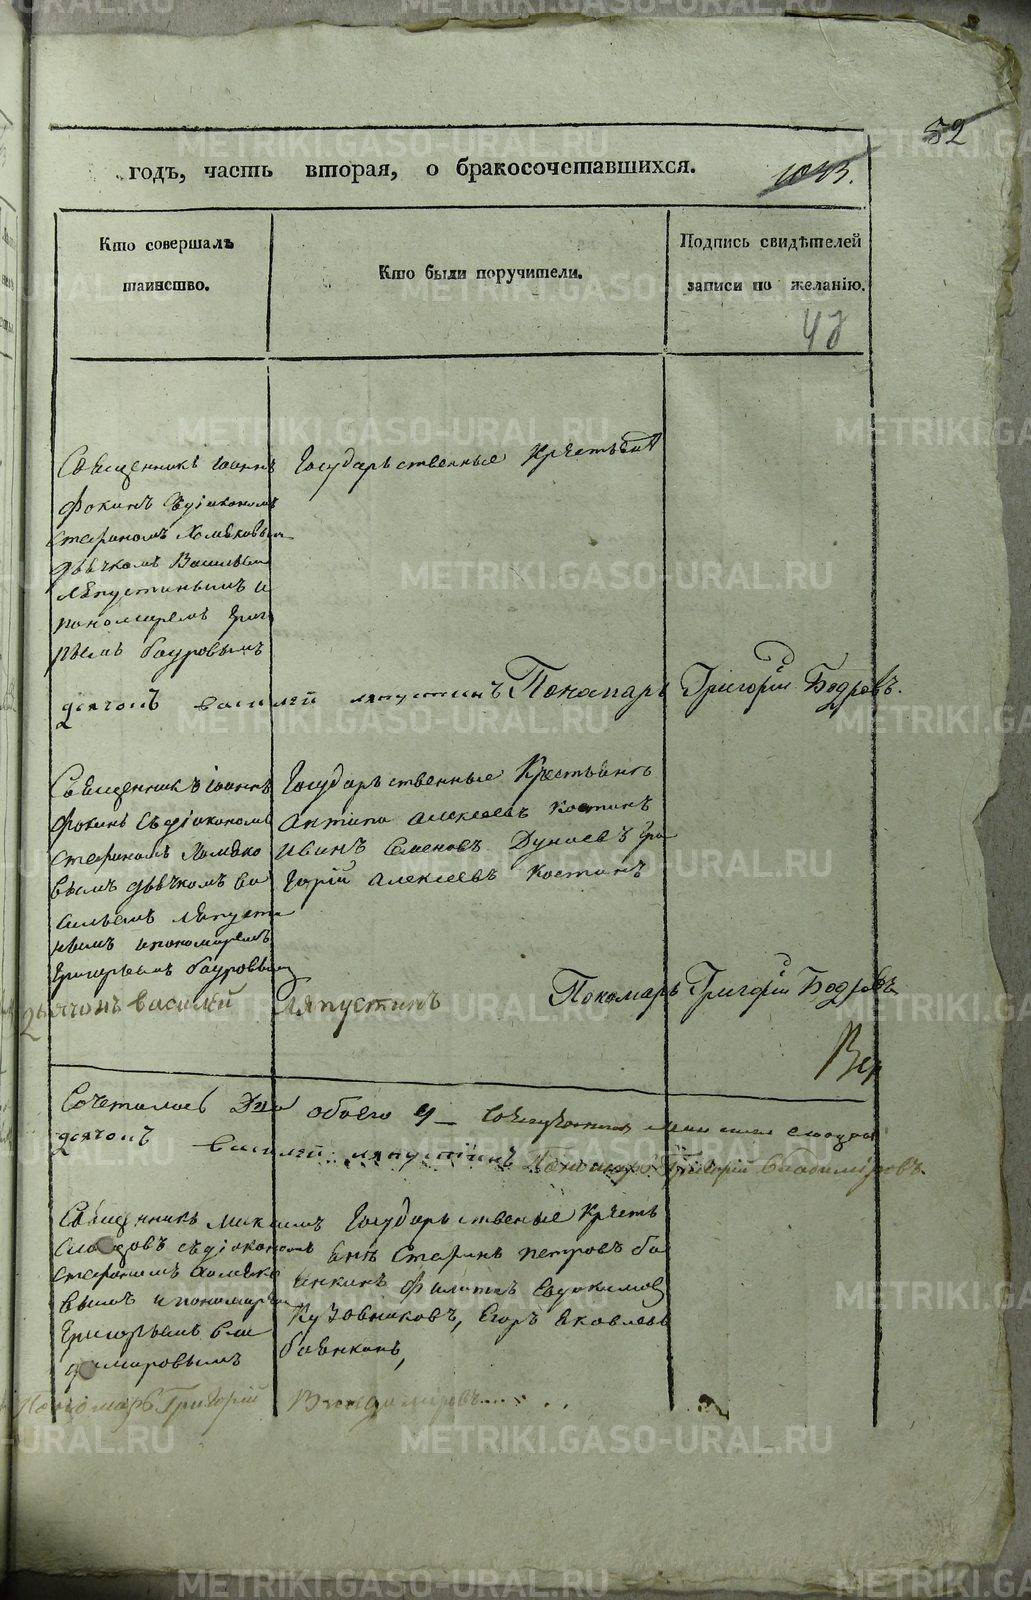 52
годъ, часть вторая, о бракосочетавшихся.
Кто совершалъ таинство.
Кто были поручители.
Подпись свидѣтелей записи по желанію.
Священникъ Іоаннъ
Фокинъ съ діакономъ
Стефаномъ Хомяковымъ
дьячкомъ Васильемъ
Ляпустинымъ и
пономаремъ Григо
рьемъ
Государственные Крестьяне
дьячокъ Василей Ляпустинъ Пономарь Григорій Бодровъ.
Священникъ Іоаннъ
Фокинъ съ діакономъ
Стефаномъ Хомяко
вымъ дьячкомъ Ва
сильемъ Ляпусти
нымъ и пономаремъ
Григорьемъ
Государственные Крестьяне
Антипа Алексеевъ Костинъ
Иванъ Семеновъ Дунаевъ Гри
горій Алексеевъ Костинъ
дьячокъ Василей Ляпустинъ Пономарь Григорій Бодровъ
Вер
Сочеталось обоего
дьячокъ Василей Ляпустинъ Пономарь Григорій Владимировъ.
Священникъ Михаилъ
съ діакономъ
Стефаномъ Хомяко
вымъ и пономаремъ
Григорьемъ Вла
димировымъ
Государственые Кресть
яне Стефанъ Петровъ Ба
Филипъ Евдокимовъ
Кузовниковъ, Егоръ Яковлевъ
Пономарь Григорій Владимировъ
METRIKI.GASO-URAL.RU